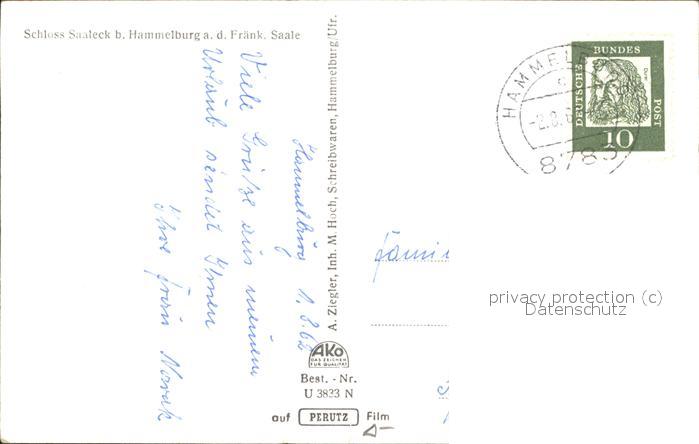 Schloss Saaleck b. Hammelburg a. d. Fränk. Saale
Hammelburg 1.8.62
Viele Grüße aus meinem
Urlaub sendet Ihnen
Ihre Frau Novak
A. Ziegler, Inh. M. Hoch, Schreibwaren, Hammelburg/Ufr.
AKO
DAS ZEICHEN
FÜR QUALITÄT
Best. - Nr.
U 3823 N
auf PERUTZ Film
HAMMELB
-2.8.6
8783
DEUTSCHE
BUNDES
POST
Dürer
10
Fami
privacy protection (c)
Datenschutz